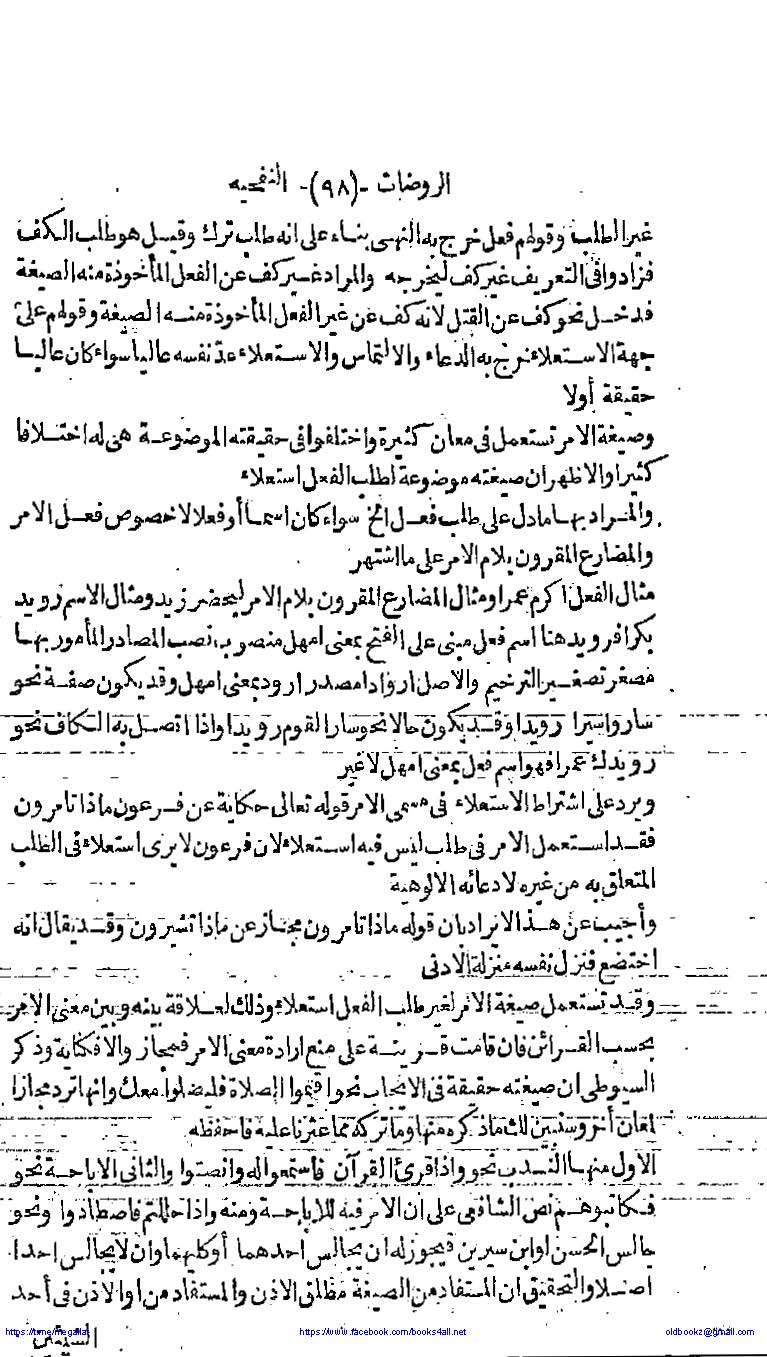 الروضات -(٩٨)- النفحيه
غير الطلب وقولهم فعل خرج به النهى بناء على انه طلب ترك وقيل هو طلب الكف
فزادوا فى التعريف غير كف ليخرجه والمراد غير كف عن الفعل المأخوذة منه الصيغة
فدخل نحو كف عن القتل لانه كف عن غير الفعل المأخوذة منه الصيغة وقولهم على
جهة الاستعلاء خرج به الدعاء والالتماس والاستعلاء عد نفسه عاليا سواء كان عاليا
حقيقة أولا
وصيغة الامر تستعمل فى معان كثيرة واختلفوا فى حقيقته الموضوعة هى له اختلافا
كثيرا والاظهر ان صيغته موضوعة لطلب الفعل استعلاء
والمراد بها ما دل على طلب فعل الخ سواء كان اسما أو فعلا لا خصوص فعل الامر
والمضارع المقرون بلام الامر على ما اشتهر
مثال الفعل اكرم عمرا ومثال المضارع المقرون بلام الامر ليحضر زيد ومثال الاسم رويد
بكرا فرويد هنا اسم فعل مبنى على الفتح بمعنى امهل منصوب نصب المصادر المأمور بها
مصغر تصغير الترخيم والاصل ارؤادا مصدر ارود بمعنى امهل وقد يكون صفة نحو
ساروا سيرا رويدا وقد يكون حالا نحو سار القوم رويدا واذا اتصل به الكاف نحو
رويدك عمرا فهو اسم فعل بمعنى امهل لا غير
ويرد على اشتراط الاستعلاء فى مسمى الامر قوله تعالى حكاية عن فرعون ماذا تامرون
فقد استعمل الامر فى طلب ليس فيه استعلاء لان فرعون لا يرى استعلاء فى الطلب
المتعلق به من غيره لادعائه الالوهية
وأجيب عن هذا الايراد بان قوله ماذا تامرون مجاز عن ماذا تشيرون وقد يقال انه
اختضع فنزل نفسه منزلة الادنى
وقد تستعمل صيغة الامر لغير طلب الفعل استعلاء وذلك لعلاقة بينه وبين معنى الامر
بحسب القرائن فان قامت قرينة على منع ارادة معنى الامر فمجاز والا فكناية وذكر
السيوطى ان صيغته حقيقة فى الايجاب نحو اقيموا الصلاة فليصلوا معك وانها ترد مجازا
لمعان أخر وسنبين لك ما ذكره منها وما تركه مما عثرنا عليه فاحفظه
الاول منها الندب نحو واذا قرئ القرآن فاستمعوا له وانصتوا والثانى الاباحة نحو
فكاتبوهم نص الشافعى على ان الامر فيه للاباحة ومنه واذا حللتم فاصطادوا ونحو
جالس الحسن او ابن سيرين فيجوز له ان يجالس احدهما أو كليهما وان لا يجالس احدا
اصلا والتحقيق ان المستفاد من الصيغة مطلق الاذن والمستفاد من او الاذن فى أحد
الشيئين
https://www.facebook.com/books4all.net
oldbookz@gmail.com